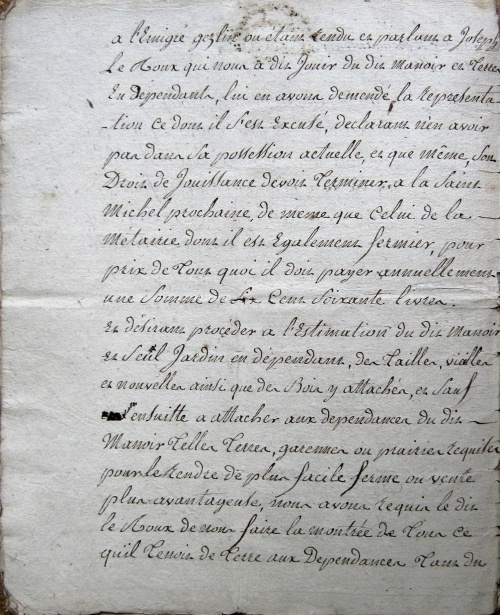 a l'Emigré gezlin ou étans rendu et parlans a Joseph
Le Roux qui nous a dit Jouir du dit manoir et Terres
En Dependants, lui en avons demendé la Representa
-tion ce dont il s'est Excusé, declarant n'en avoir
pas dans Sa possession actuelle, et que même, son
Droit de Jouissance devoit Terminer, a la Saint
Michel prochaine, de meme que Celui de la
Métairie dont il est Egalement fermier, pour
prix de Tous quoi il doit payer annuellement
une Somme de Six Cent Soixante livres.
Et désirant procéder a l'Estimation du dit Manoir
et Seul Jardin en dépendant, des Tailles, vieilles
et nouvelles ainsi que des Bois y attachés, et Sauf
ensuitte a attacher aux dependances du dit
Manoir Telles Terres, garennes ou prairies requises
pour le Rendre de plus facile ferme ou vente
plus avantageuse, nous avons Requis le dit
le Roux de nous faire la montrée de Tous ce
qu'il Tenoit de Terre aux Dependances Tans du